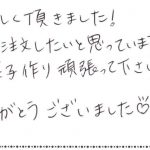 しく頂きました!
注文したいと思っていま
子作り頑張って下さい
がとうございました♡